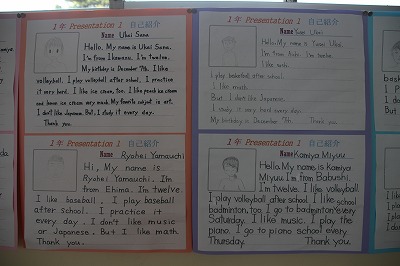 1年 Presentation 1 自己紹介
Name Ukai Sana
Hello. My name is Ukai Sana.
I'm from Ikamazu. I'm twelve.
My birthday is December 7th. I like
volleyball. I play volleyball after school. I practice
it very hard. I like ice cream, too. I like peach ice cream
and lemon ice cream very much. My favorite subject is art.
I don't like Japanese. But, I study it every day.
Thank you.
1年 Presentation 1 自己紹介
Name Yuei Ukai
Hello. My name is Yuei Ukai.
I'm from I'm twelve.
I like
I play basketball after school.
I like math.
But, I don't like Japanese.
I study it very hard every day.
My birthday is December 7th. Thank you.
1年 Presentation 1 自己紹介
Name Ryohei Yamauchi
Hi, My name is
Ryohei Yamauchi. I'm
from Ehima. I'm twelve.
I like baseball. I play baseball
after school. I practice it
every day. I don't like music
or Japanese. But I like math.
Thank you.
1年 Presentation 1 自己紹介
Name Kamiya Miyuu
Hello. My name is Kamiya
Miyuu. I'm from Babushi.
I'm twelve. I like volleyball.
I play volleyball after school. I like
badminton, too. I go to badminton every
Saturday. I like music. I play the
piano. I go to piano school every
Thursday. Thank you.